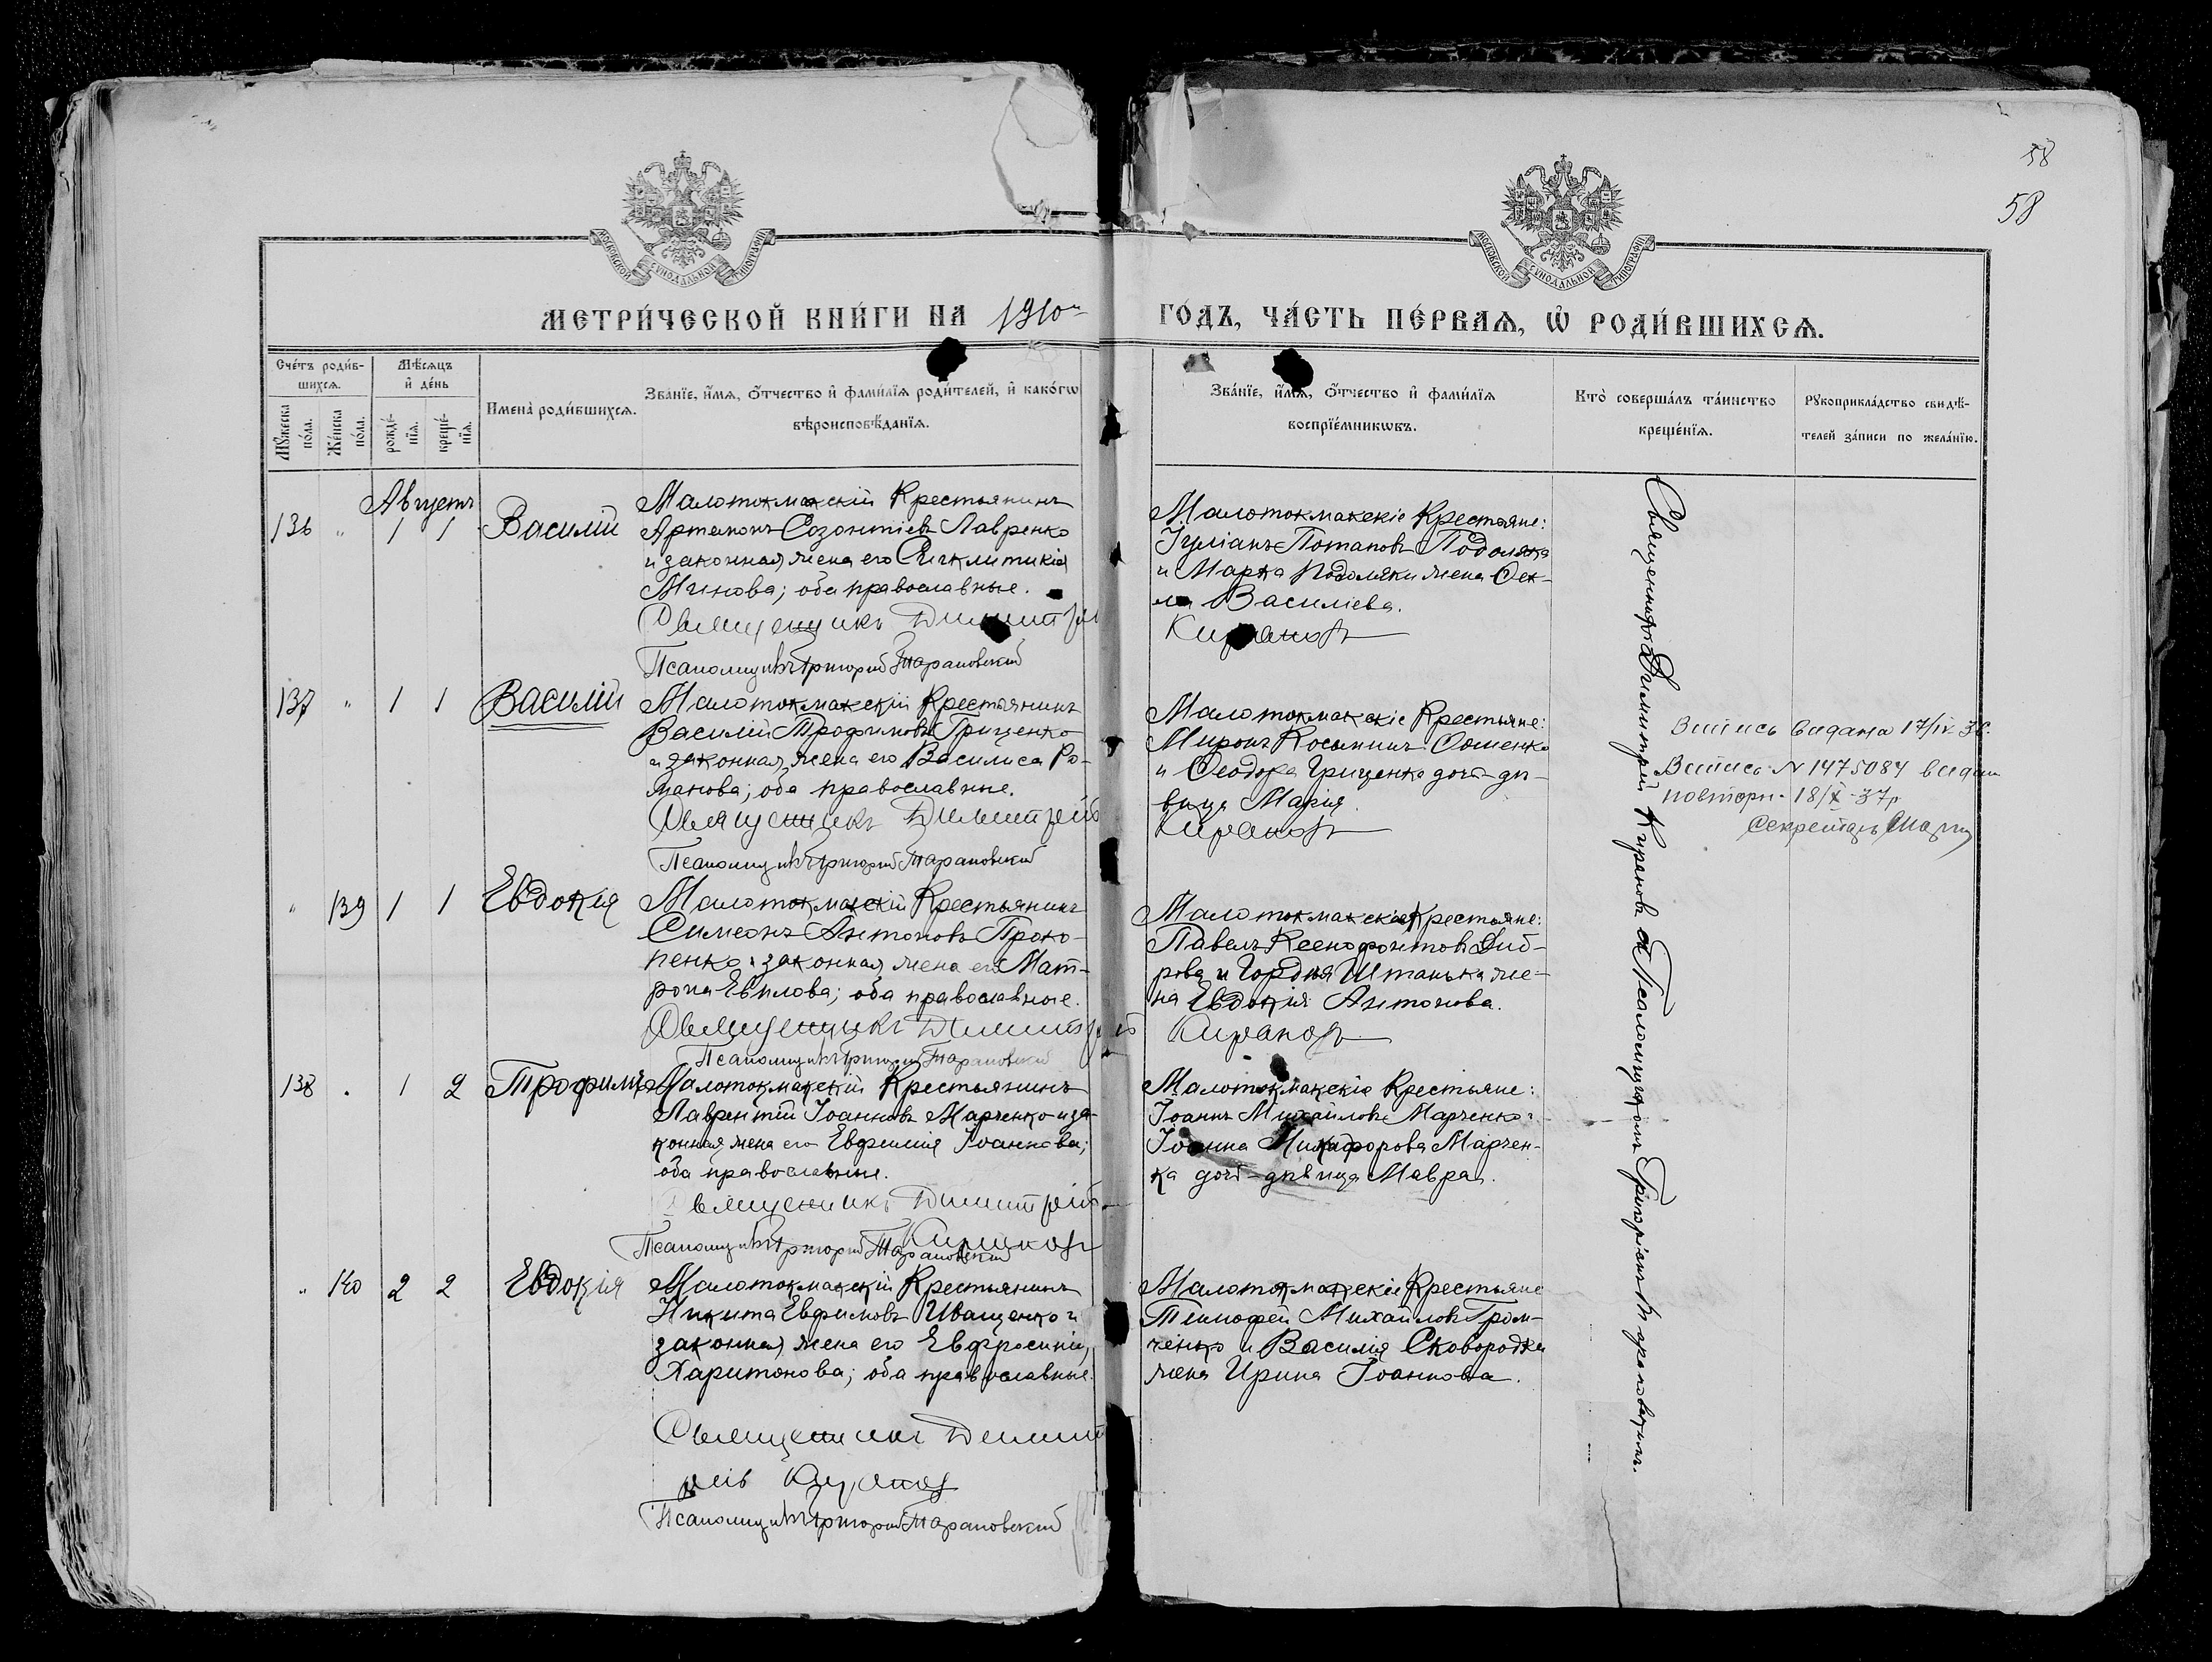 58
58
МОСКОВСКОЙ СѴНОДАЛЬНОЙ ТИПОГРАФІИ
МОСКОВСКОЙ СѴНОДАЛЬНОЙ ТИПОГРАФІИ
МЕТРИ́ЧЕСКОЙ КНИ́ГИ НА 1910й ГО́ДЪ, ЧА́СТЬ ПЕ́РВАЯ, Ѡ РОДИ́ВШИХСЯ.
Сче́тъ роди́в-
шихся.
Мꙋжеска по́ла.
Же́нска по́ла.
Мѣ́сяцъ
и҆ де́нь
рожде́-
нїя.
креще́-
нїя.
Имена̀ роди́вшихся.
Зва́нїе, и҆́мя, ѻ҆́тчество и҆ фами́лїя роди́телей, и҆ како́гѡ
вѣроисповѣ́данїя.
Зва́нїе, и҆́мя, ѻ҆́тчество и҆ фами́лїя
воспрїе́мникѡвъ.
Кто̀ соверша́лъ та́инство
креще́нїя.
Рꙋкоприкла́дство свидѣ́-
телей за́писи по жела́нїю.
Августъ
136 " 1 1 Василій
Малотокмакскій Крестьянинъ
Артамонъ Созонтіевъ Лавренко
и законная жена его Синклитикія
Минова; оба православные.
Священникъ Димитрій
Псаломщикъ Григорий Тарановский
Малотокмакскіе Крестьяне:
Іуліанъ Потаповъ Подоляка
и Марка Подоляки жена Ѳек-
ла Василіева.
Кирановъ
137 " 1 1 Василій
Малотокмакскій Крестьянинъ
Василій Трофимовъ Гриценко
и законная жена его Василиса Ро-
манова; оба православные.
Священникъ Димитрій
Псаломщикъ Григорий Тарановский
Малотокмакскіе Крестьяне:
Миронъ Косьминъ
и Ѳеодора Гриценка дочь-дѣ-
вица Марія.
Кирановъ
Випись видана 17/IV 36.
Випись N 1475084 видан
повторн. 18/X-37р
Секретарь
" 139 1 1 Евдокія
Малотокмакскій Крестьянинъ
Симеонъ Антоновъ Проко-
пенко и законная жена его Мат-
рона Евилова; оба православные.
Священникъ Димитрій
Псаломщикъ Григорий Тарановский
Малотокмакскіе Крестьяне:
Павелъ Ксенофонтовъ Диб-
рова и Гордѣя Штанька же-
на Евдокія Антонова.
Кирановъ
138 " 1 2 Трофимъ
Малотокмакскій Крестьянинъ
Лаврентій Іоанновъ Марченко и за-
конная жена его Евфимія Іоаннова;
оба православные.
Священникъ Димитрій
Кирановъ
Псаломщикъ Григорий Тарановский
Малотокмакскіе Крестьяне:
Іоаннъ Михайловъ Марченко и
Іоанна Никифорова Марчен-
ка дочь-дѣвица Мавра.
" 140 2 2 Евдокія
Малотокмакскій Крестьянинъ
Никита Евфимовъ Иващенко и
законная жена его Евфросинія
Харитонова; оба православные.
Священникъ Димит
рій Кирановъ
Псаломщикъ Григорий Тарановский
Малотокмакскіе Крестьяне
Тимофей Михайловъ Гром-
ченко и Василія Сковородка
жена Ирина Іоаннова.
Священникъ Димитрій Кирановъ съ Псаломщикомъ Григоріемъ Тарановскимъ.